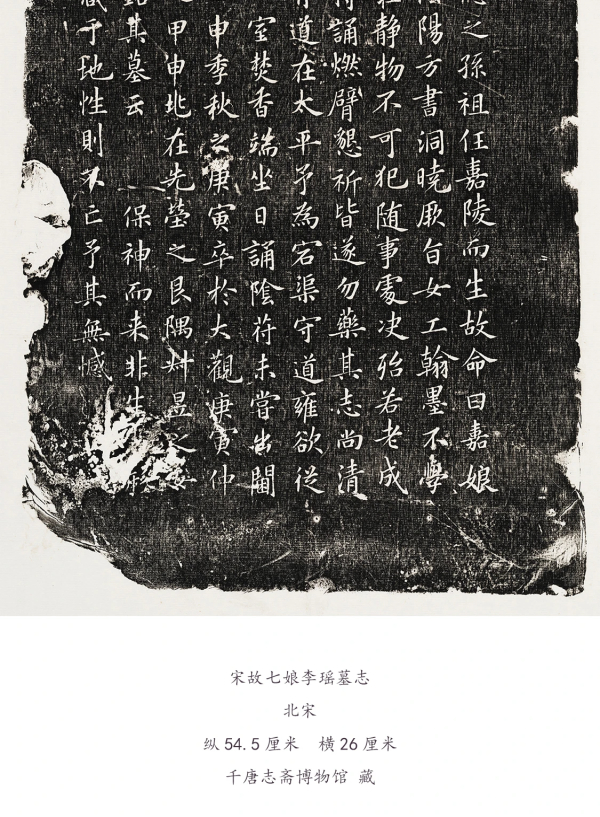 之孫祖任嘉陵而生故命曰嘉娘
陽方書洞曉厥旨女工翰墨不學
靜物不可犯随事處决殆若老成
誦燃臂懇祈皆遂勿藥其志尚清
道在太平予為宕渠守道雍欲従
室焚香端坐日誦陰符未嘗出閫
申季秋之庚寅卒於大觀庚寅仲
甲申兆在先塋之艮隅
其墓云 保神而来非生
于地性則不亡予其無憾
宋故七娘李瑶墓志
北宋
纵 54.5 厘米 横 26 厘米
千唐志斋博物馆 藏